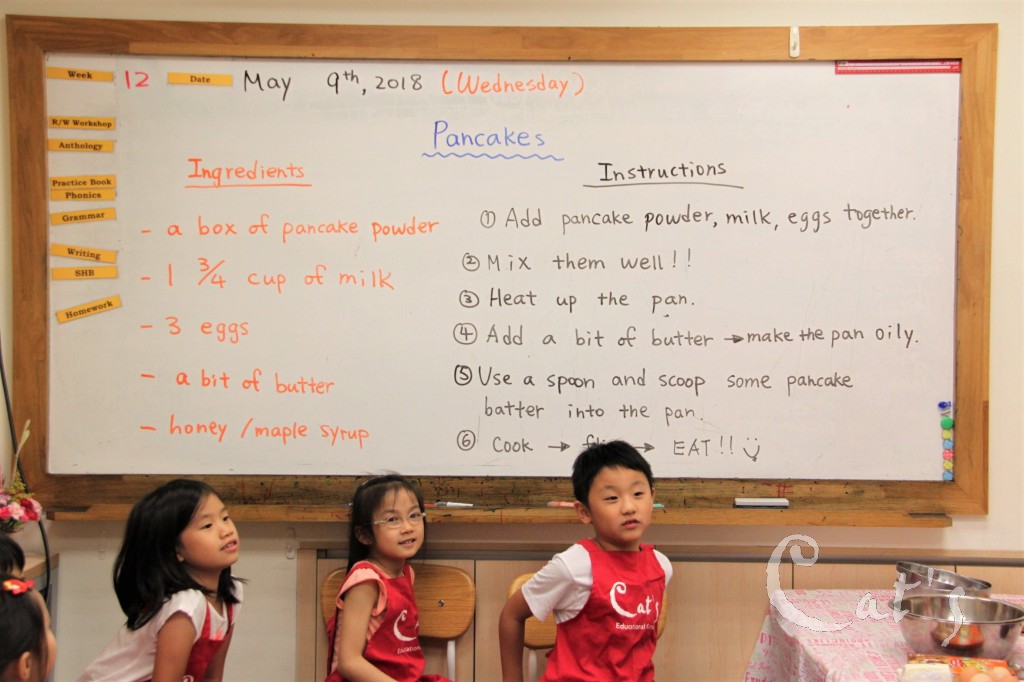 Week 12 Date May 9th, 2018 (Wednesday)
R/W Workshop
Anthology
Practice Book
Phonics
Grammar
Writing
SHB
Homework
Pancakes
Ingredients
- a box of pancake powder
- 1 3/4 cup of milk
- 3 eggs
- a bit of butter
- honey / maple syrup
Instructions
① Add pancake powder, milk, eggs together.
② Mix them well!!
③ Heat up the pan.
④ Add a bit of butter → make the pan oily.
⑤ Use a spoon and scoop some pancake
batter into the pan.
⑥ Cook → flip → EAT!!
Cat's
Educational
Cat's